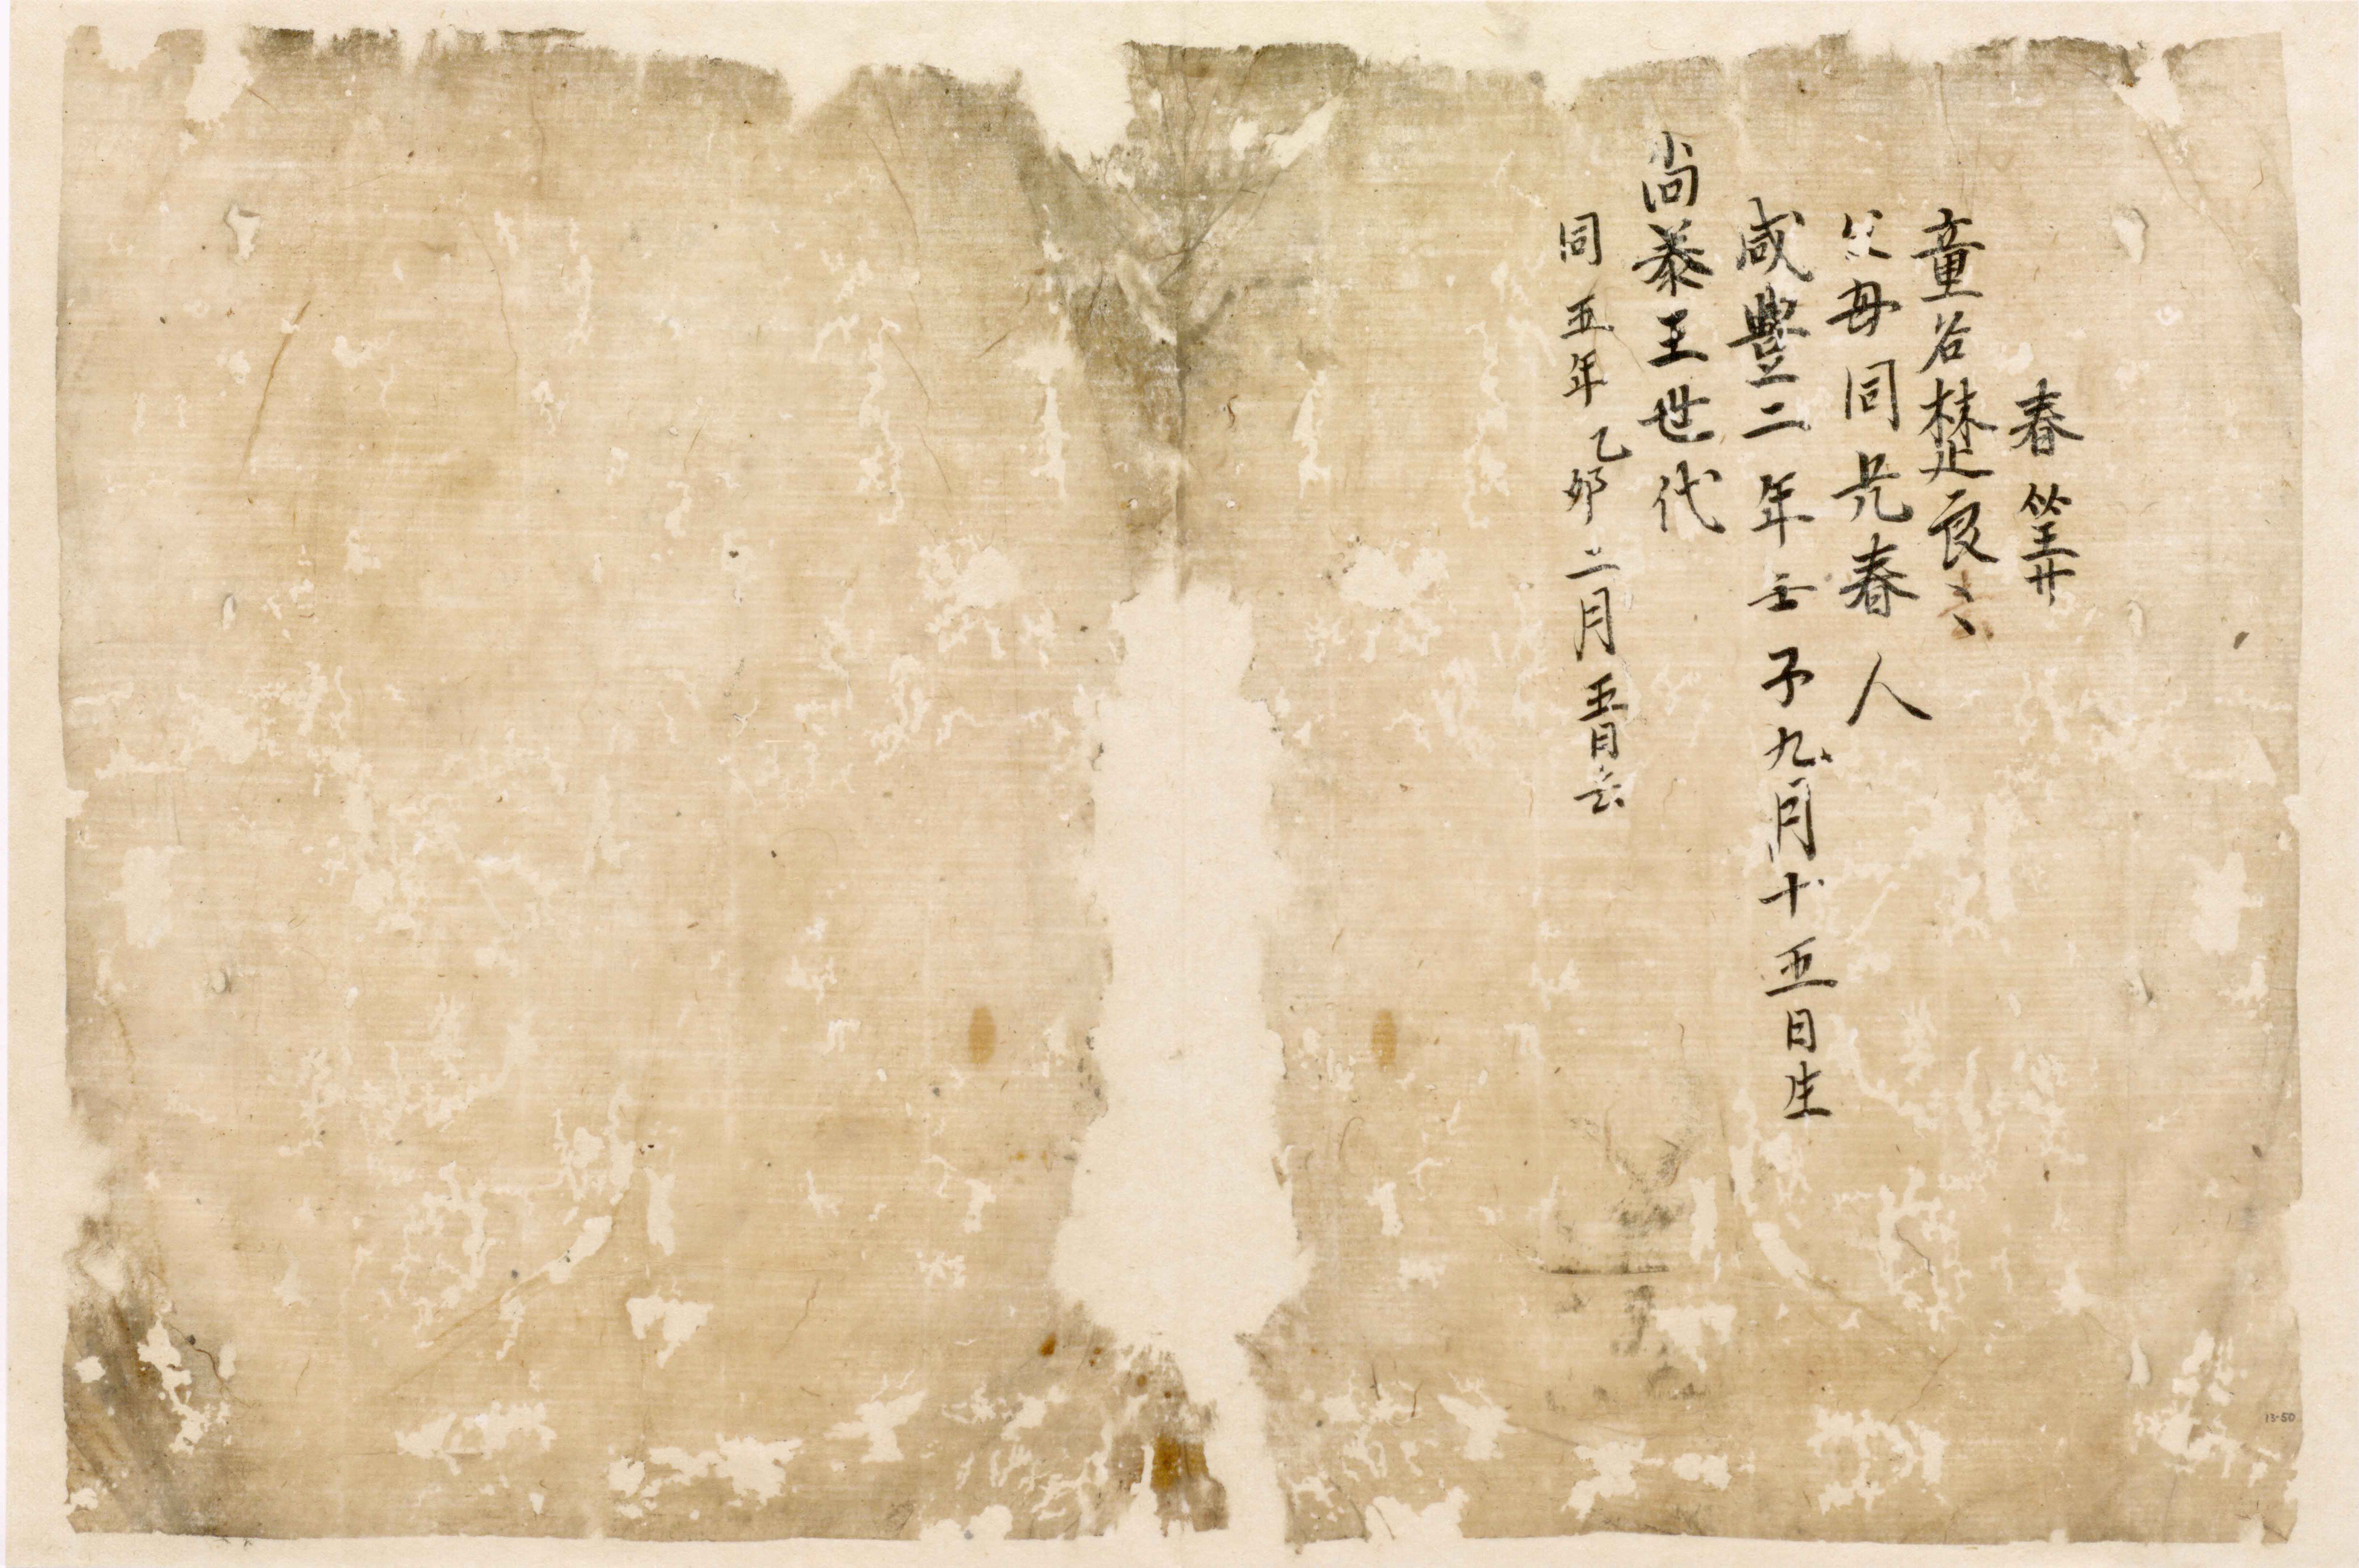 春筭
童名楚良ミ
父母同兄春人
咸豐二年壬子九月十五日生
尚泰王世代
同五年乙卯二月五日
13-50